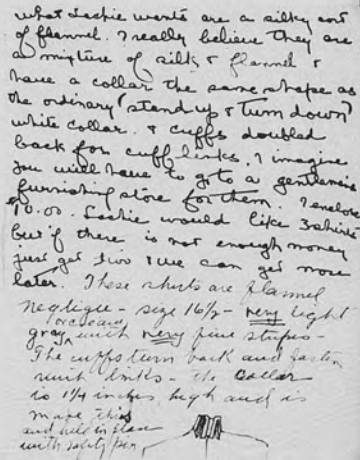 what Lachie wants are a silky sort
of flannel. I really believe they are
a mixture of silk & flannel &
have a collar the same shape as
the ordinary (stand up & turn down)
white collar. & cuffs doubled
back for cuff links. I imagine
you will have to go to a gentleman's
furnishing store for them. I enclose
$10.00. Lachie would like 3 shirts
but if there is not enough money
just get two & we can get more
later. These shirts are flannel
negligee - size 16½ - very light
gray with very fine stripes -
The cuffs turn back and fasten
with links - the collar
is 1¾ inches high and is
made this
and held in place
with safety pin